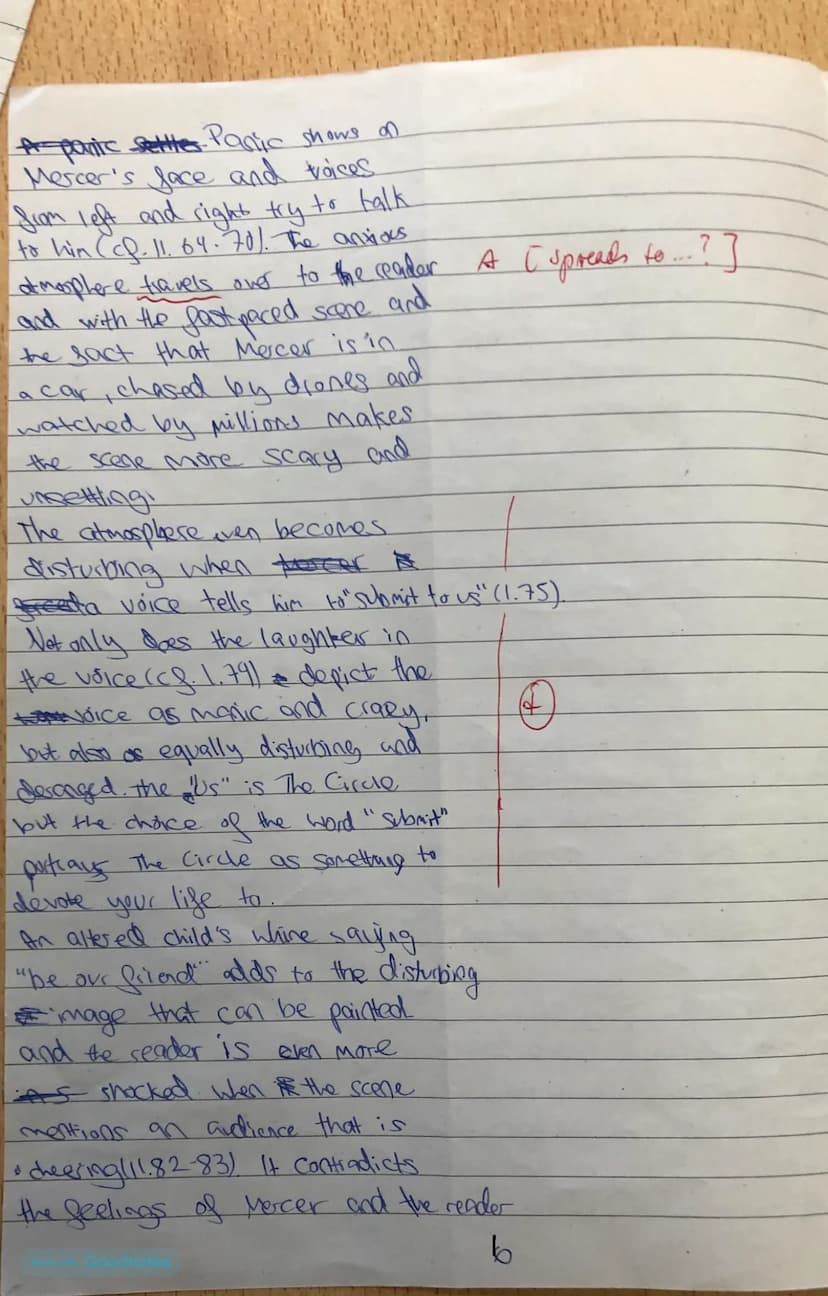 A panic settles Panic shows on
Mercer's face and voices
from left and right try to talk
to him (cf. ll. 64-70). The anxious
atmosphere travels over to the reader A [spreads to...?]
and with the fast paced scene and
the fact that Mercer is in
a car, chased by drones and
watched by millions makes
the scene more scary and
unsettling.
The atmosphere even becomes
disturbing when Mercer is
a voice tells him to "submit to us" (l.75).
Not only does the laughter in
the voice (cf. l.79) depict the
voice as manic and crazy,
but also as equally disturbing and
deranged. the "Us" is The Circle
but the choice of the word "submit"
portrays The Circle as something to
devote your life to.
An altered child's whine saying
"be our friend" adds to the disturbing
image that can be painted
and the reader is even more
shocked when the scene
mentions an audience that is
cheering (ll.82-83). It contradicts
the feelings of Mercer and the reader
6